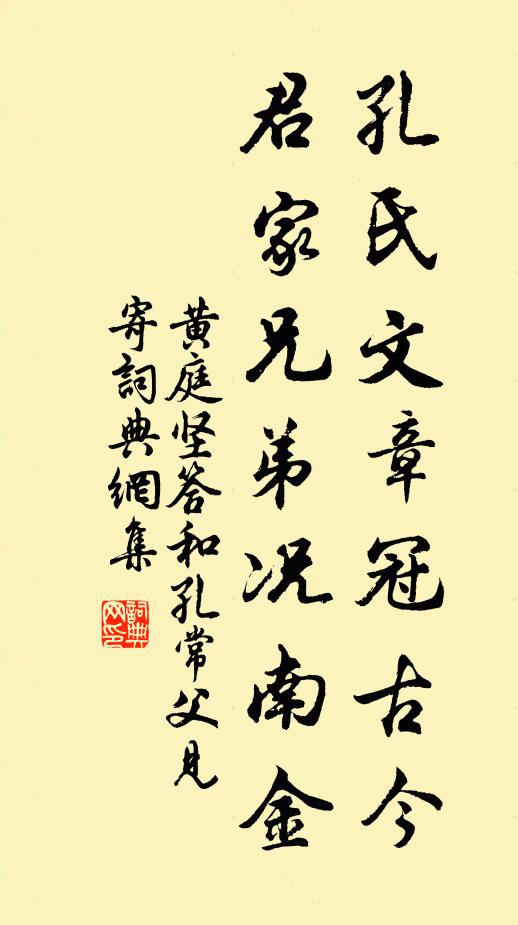 孔氏文章冠古今
君家兄弟况南金
黄庭坚答和孔常父见
寄詞典網集
詞典
网印